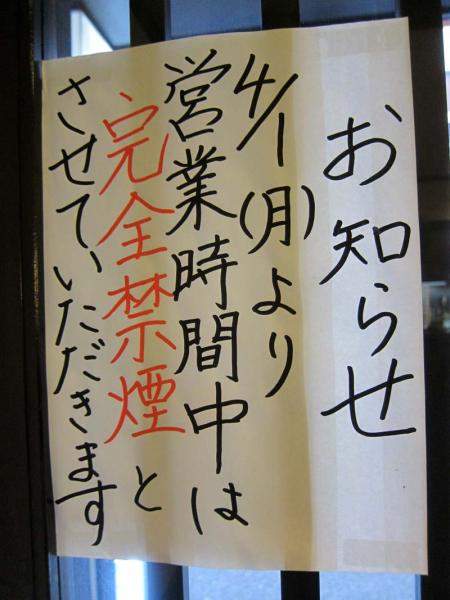 お知らせ
4/1(月)より
営業時間中は
完全禁煙と
させていただきます